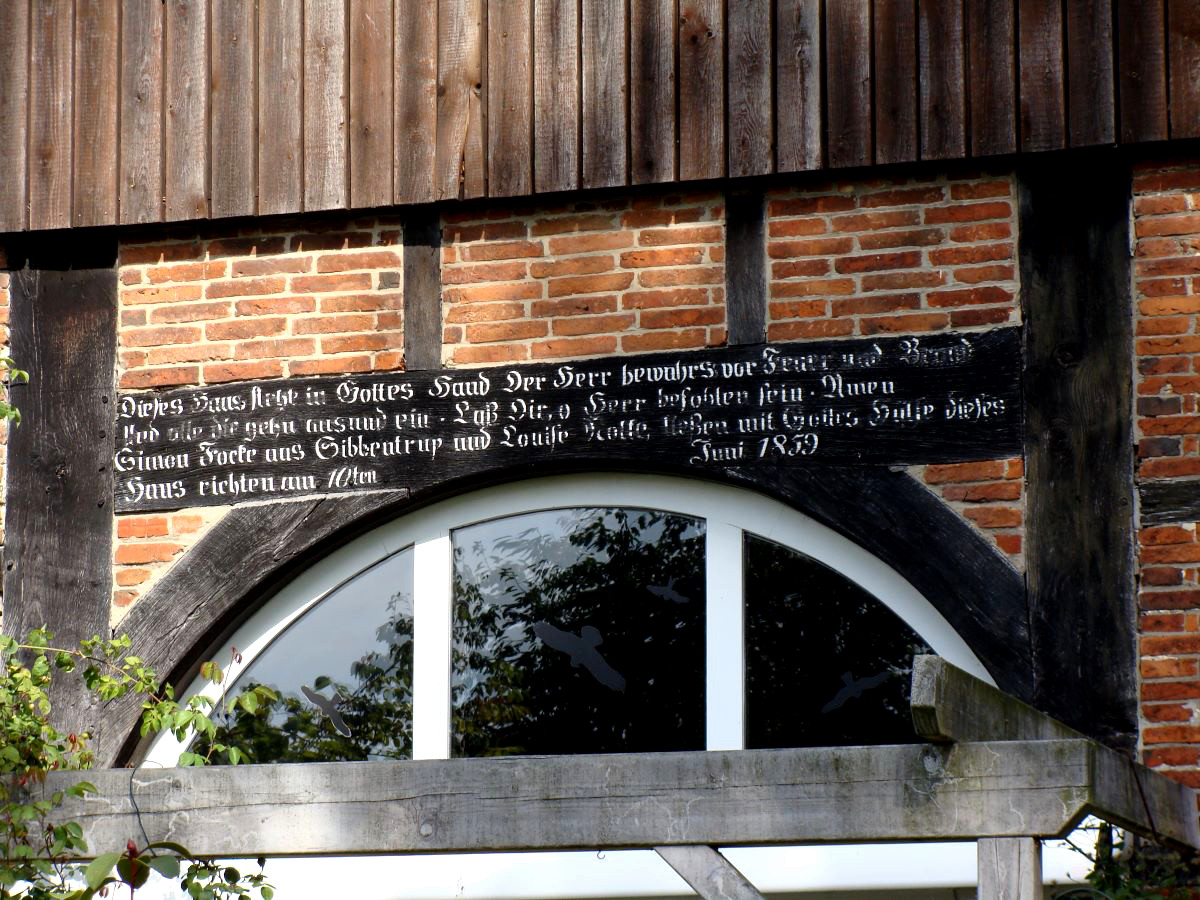 Dieses Haus steht in Gottes Hand Der Herr bewahrs vor Feuer und Brand
Und alle die gehn aus und ein. Laß Dir, o Herr befohlen sein. Amen
Simon Focke aus Sibbentrup und Louise Nolte, ließen mit Gottes Hülfe dieses
Haus richten am 10ten Juni 1859